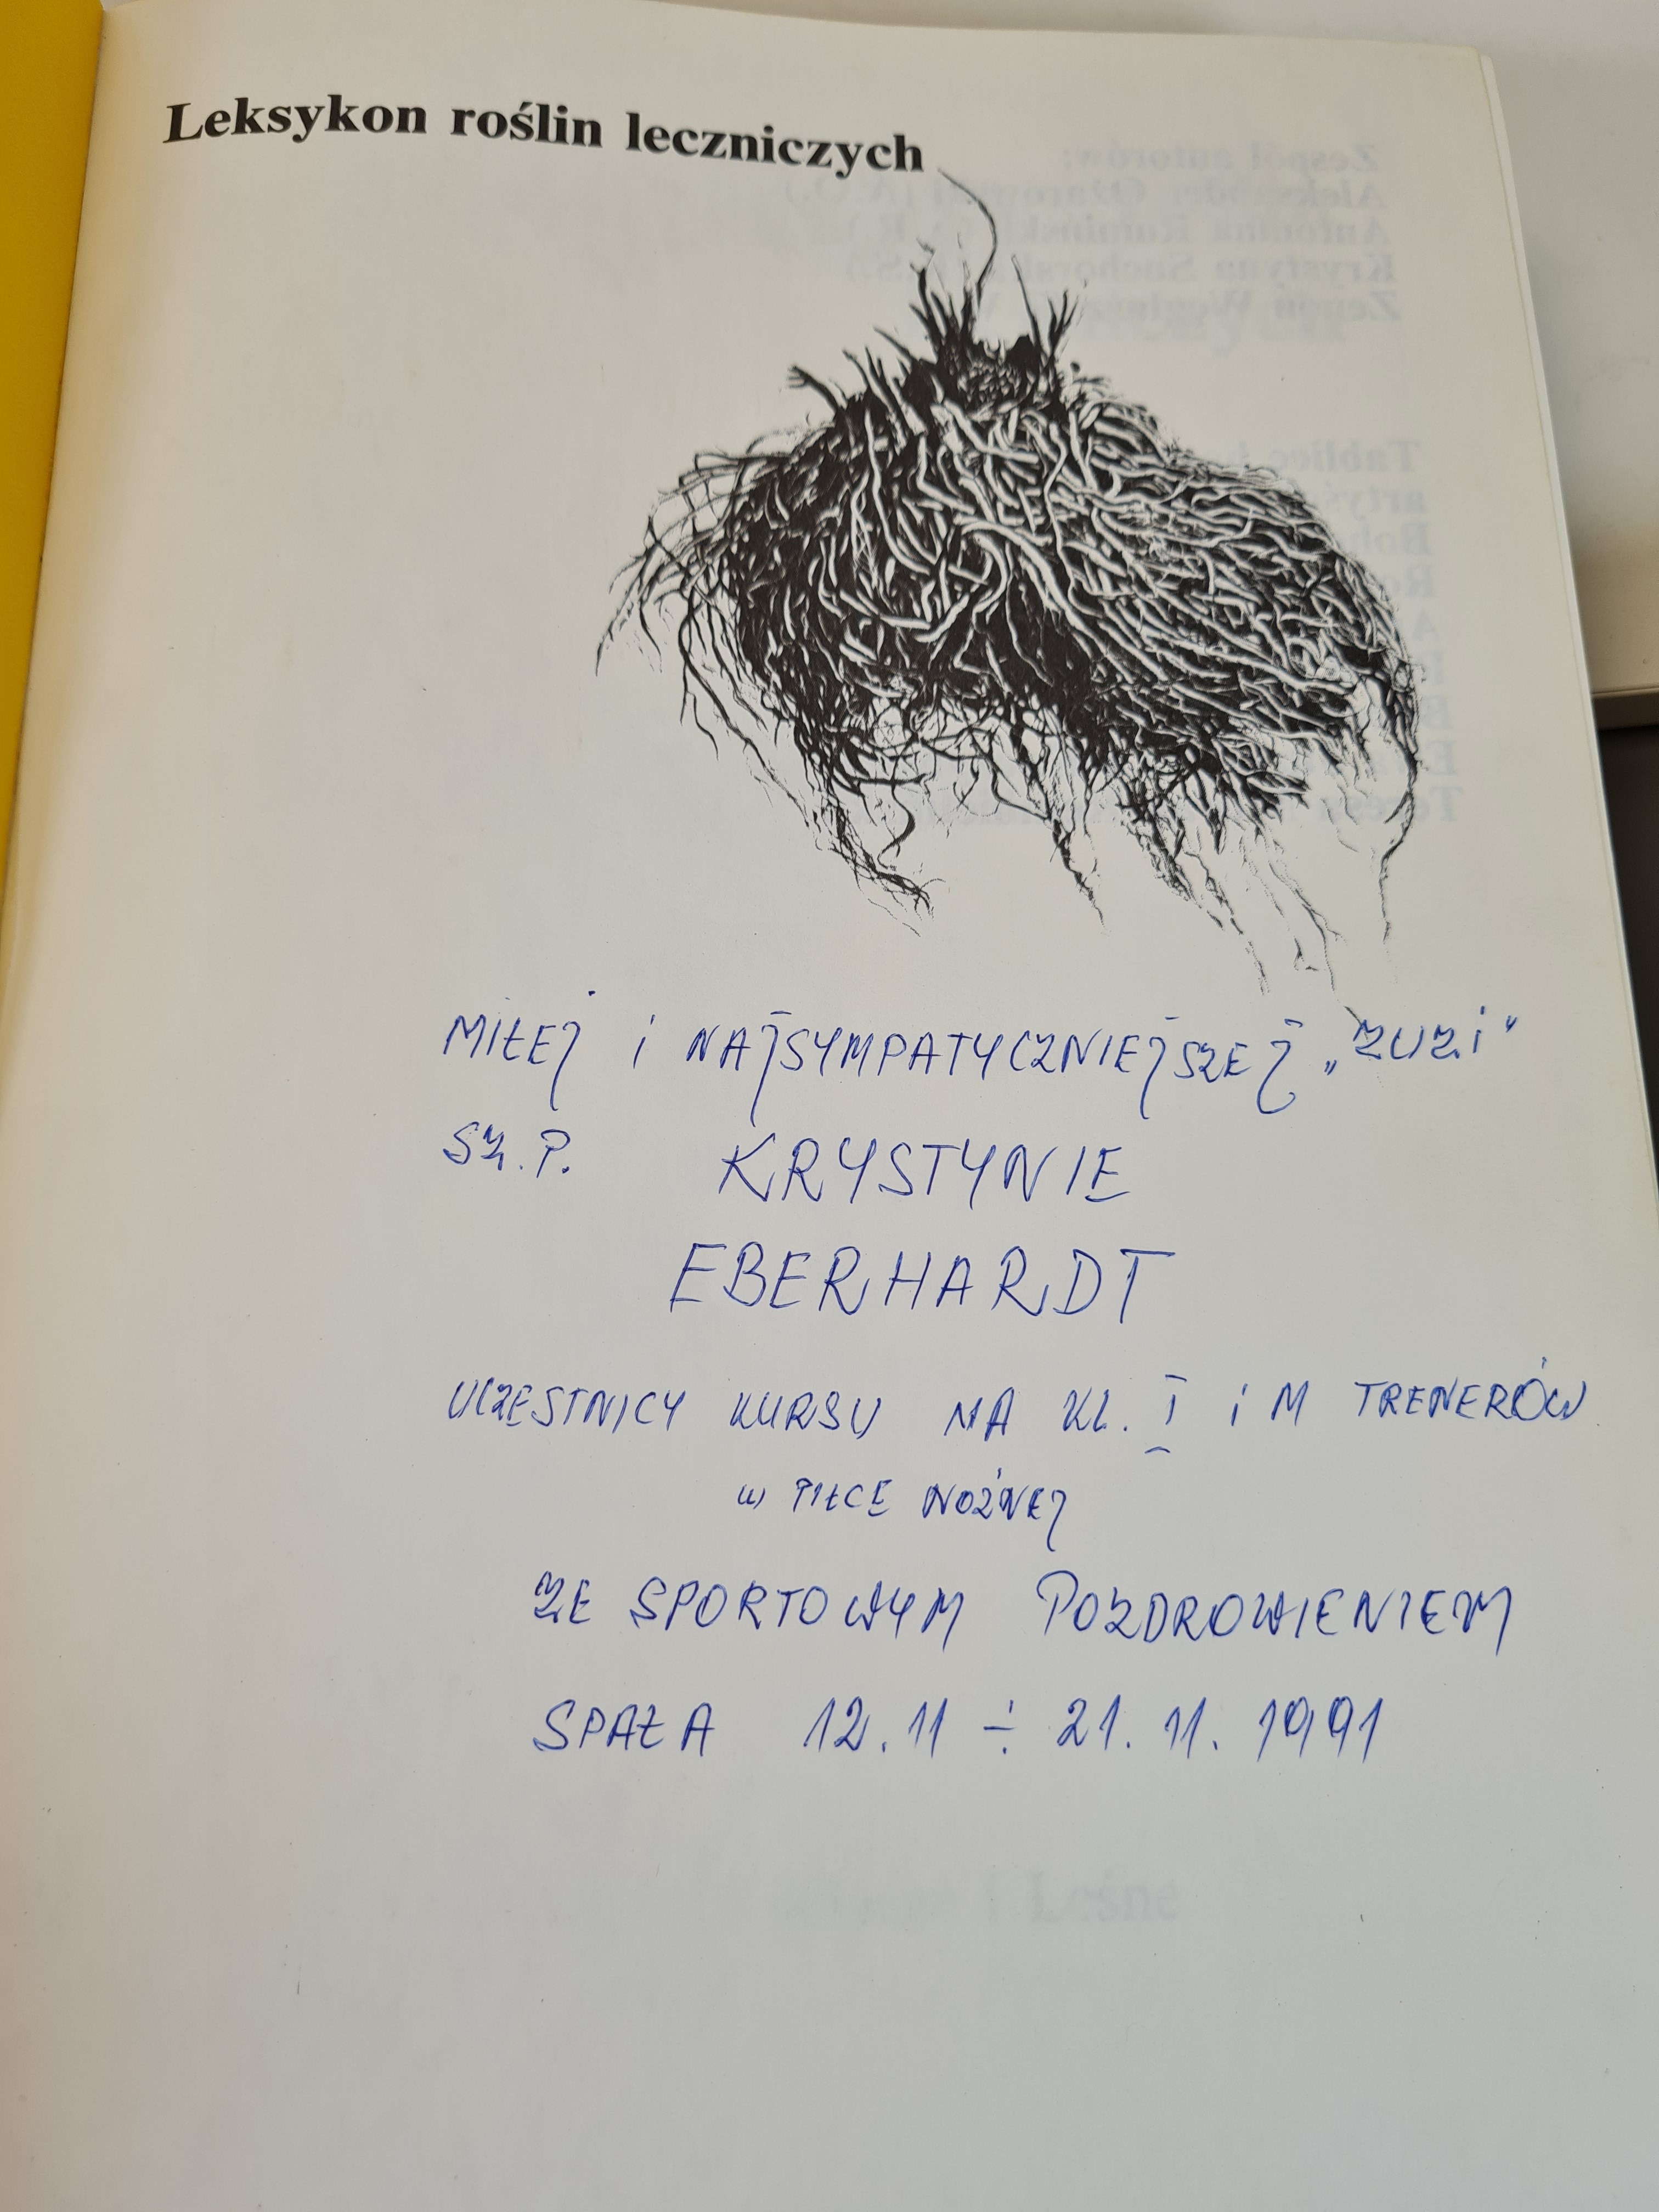 Leksykon roślin leczniczych
Zespół autorów:
MIŁEJ i NAJSYMPATYCZNIEJSZEJ „ZUZI"
SZ. P. KRYSTYNIE
EBERHARDT
UCZESTNICY KURSU NA KL. I i M TRENERÓW
W PIŁCE NOŻNEJ
ZE SPORTOWYM POZDROWIENIEM
SPAŁA 12.11 ÷ 21.11.1991
Leśne